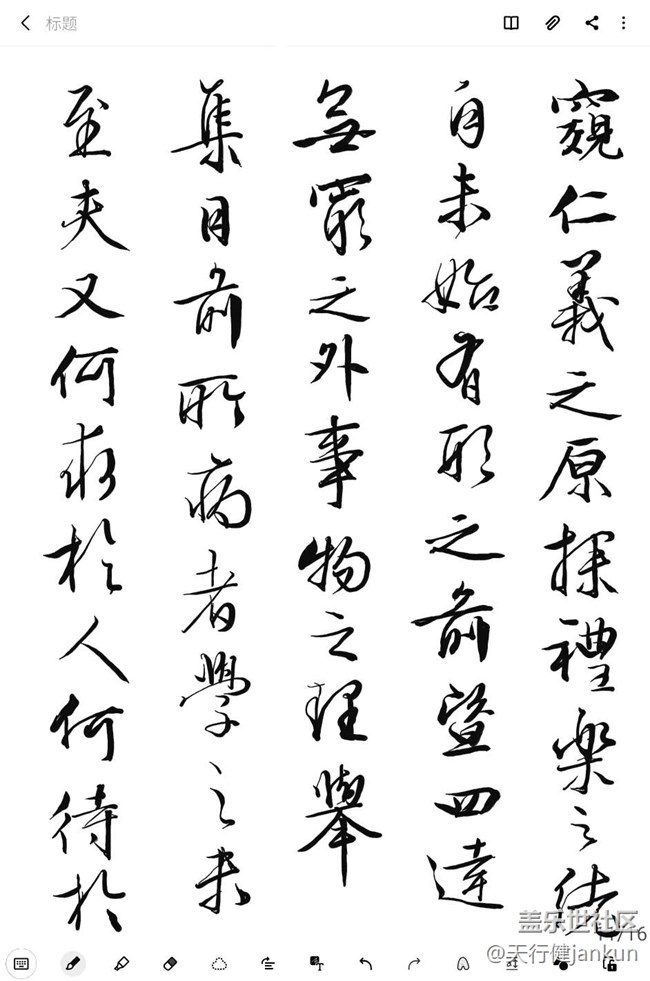 标题
窺仁義之原探禮樂之绪
自未始有形之前暨四達
無窮之外事物之理舉
集目前所病者學之未
至夫又何求於人何待於
11/16
盖乐世社区
@天行健jankun